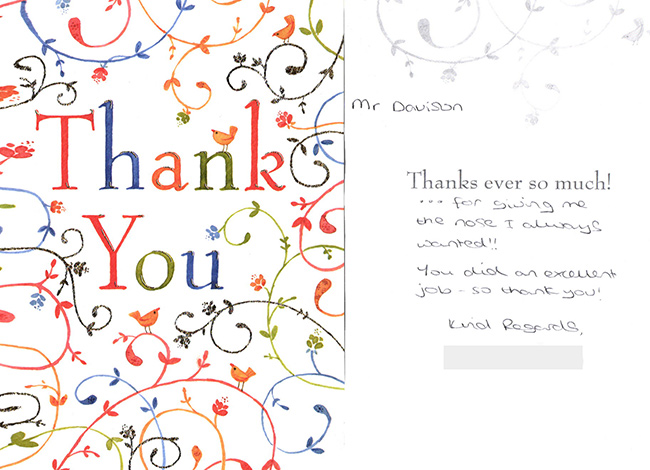 Thank
You
Mr Davison
Thanks ever so much!
... for giving me
the nose I always
wanted!!
You did an excellent
job - so thank you!
Kind Regards,